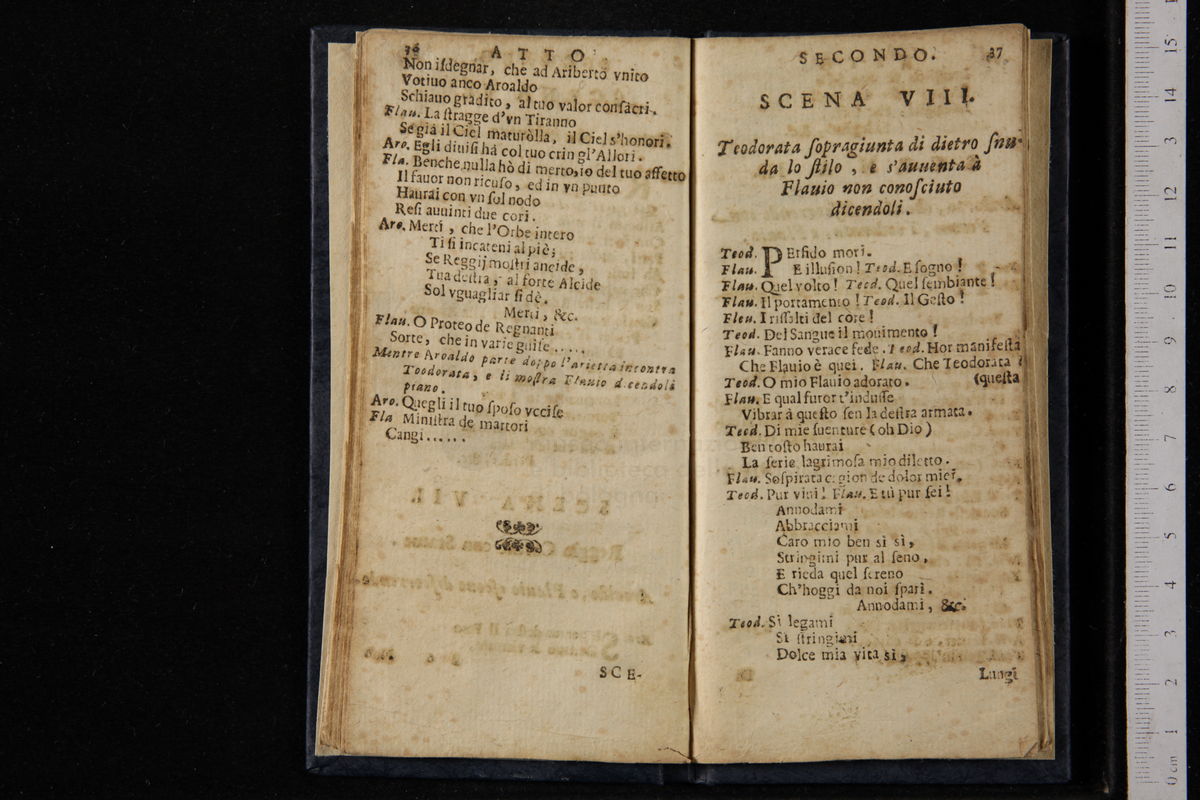 36 ATTO
Non isdegnar, che ad Ariberto vnito
Votiuo anco Aroaldo
Schiauo gradito, al tuo valor consacri.
Flau. La stragge d'vn Tiranno
Se già il Ciel maturòlla, il Ciel s'honori.
Aro. Egli diuisi hà col tuo crin gl'Allori.
Fla. Benche nulla hò di merto, io del tuo affetto
Il fauor non ricuso, ed in vn punto
Haurai con vn sol nodo
Resi auuinti due cori.
Aro. Merti, che l'Orbe intero
Ti si incateni al piè;
Se Reggij mostri ancide,
Tua destra, al forte Alcide
Sol vguagliar si dè.
Merti, &c.
Flau. O Proteo de Regnanti
Sorte, che in varie guise.....
Mentre Aroaldo parte doppo l'arietta incontra
Teodorata, e li mostra Flauio dicendoli
piano.
Aro. Quegli il tuo sposo vccise
Fla Ministra de martori
Cangi......
SCE-
SECONDO. 37
SCENA VIII.
Teodorata sopragiunta di dietro snu-
da lo stilo, e s'auuenta à
Flauio non conosciuto
dicendoli.
Teod. PErfido mori.
Flau. E illusion! Teod. E sogno!
Flau. Quel volto! Teod. Quel sembiante!
Flau. Il portamento! Teod. Il Gesto!
Flau. I rissalti del core!
Teod. Del Sangue il mouimento!
Flau. Fanno verace fede. Teod. Hor manifesta
Che Flauio è quei. Flau. Che Teodorata è
Teod. O mio Flauio adorato. (questa
Flau. E qual furor t'indusse
Vibrar à questo sen la destra armata.
Teod. Di mie suenture (oh Dio)
Ben tosto haurai
La serie lagrimosa mio diletto.
Flau. Sospirata cagion de dolor miei.
Teod. Pur viui! Flau. E tù pur sei!
Annodami
Abbracciami
Caro mio ben sì sì,
Stringimi pur al seno,
E rieda quel sereno
Ch'hoggi da noi sparì.
Annodami, &c.
Teod. Sì legami
Sì stringimi
Dolce mia vita sì,
Lungi